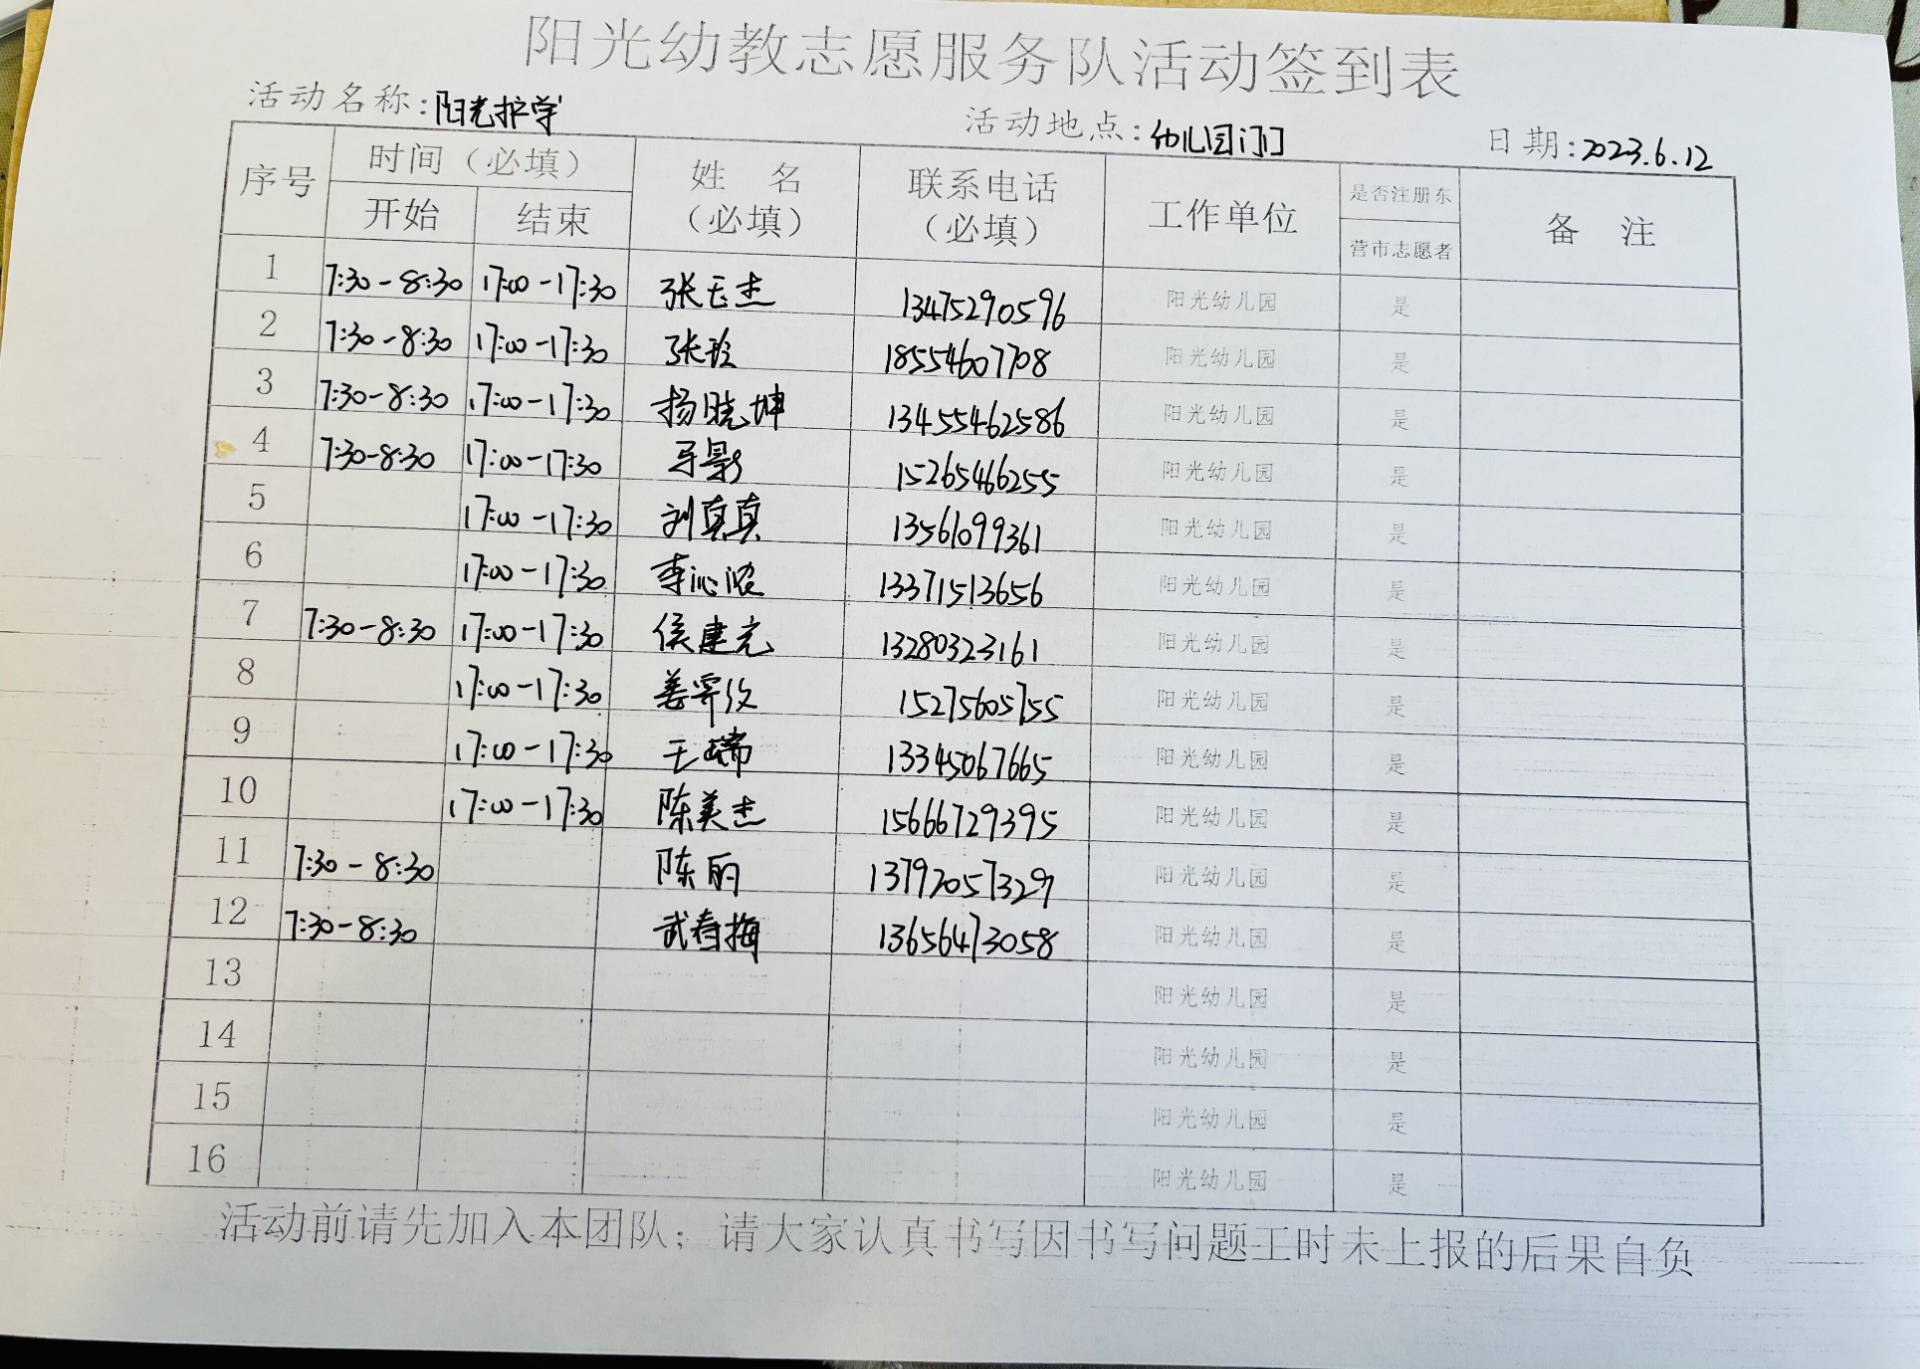 阳光幼教志愿服务队活动签到表
活动名称:阳光护学 活动地点:幼儿园门口 日期:2023.6.12
序号 时间（必填） 姓 名（必填） 联系电话（必填） 工作单位 是否注册东营市志愿者 备 注
开始 结束
1 7:30-8:30 17:00-17:30 张玉杰 13475290596 阳光幼儿园 是
2 7:30-8:30 17:00-17:30 张玲 18554607708 阳光幼儿园 是
3 7:30-8:30 17:00-17:30 杨晓坤 13455462586 阳光幼儿园 是
4 7:30-8:30 17:00-17:30 15265466255 阳光幼儿园 是
5 17:00-17:30 刘真真 13561099361 阳光幼儿园 是
6 17:00-17:30 李沁浓 13371513656 阳光幼儿园 是
7 7:30-8:30 17:00-17:30 侯建元 13280323161 阳光幼儿园 是
8 17:00-17:30 姜霁纹 15275605755 阳光幼儿园 是
9 17:00-17:30 王瑞 13345067665 阳光幼儿园 是
10 17:00-17:30 陈美杰 15666729395 阳光幼儿园 是
11 7:30-8:30 陈丽 13792057329 阳光幼儿园 是
12 7:30-8:30 武春梅 13656473058 阳光幼儿园 是
13 阳光幼儿园 是
14 阳光幼儿园 是
15 阳光幼儿园 是
16 阳光幼儿园 是
活动前请先加入本团队；请大家认真书写因书写问题工时未上报的后果自负